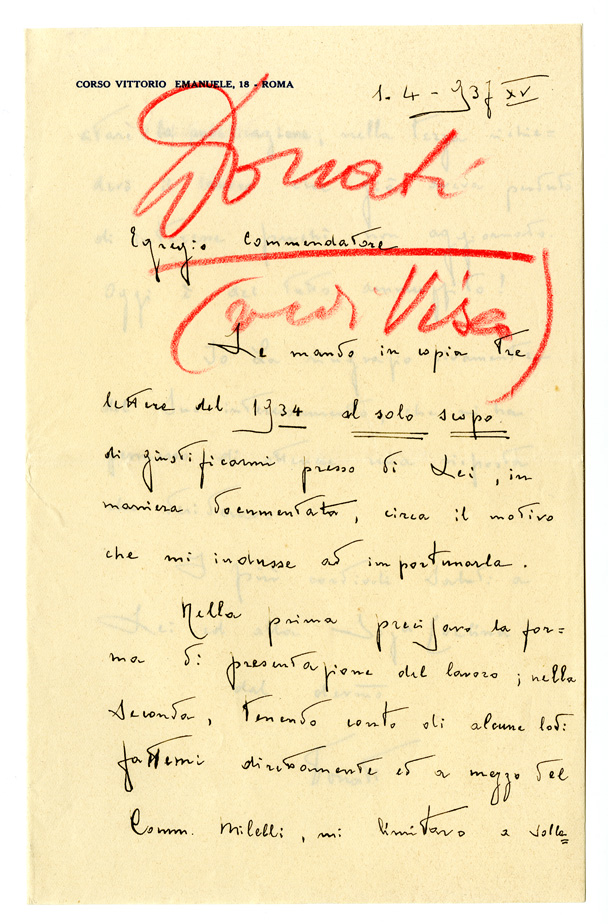 CORSO VITTORIO EMANUELE, 18 - ROMA
1. 4 - 937 XV
Donati
Egregio Commendatore
(vedi Visco)
Le mando in copia tre
lettere del 1934 al solo scopo
di giustificarmi presso di Lei, in
maniera documentata, circa il motivo
che mi indusse ad importunarla.
Nella prima precisavo la for=
ma di presentazione del lavoro; nella
seconda, tenendo conto di alcune lodi
fattemi direttamente ed a mezzo del
Comm. Milelli, mi limitavo a solle=